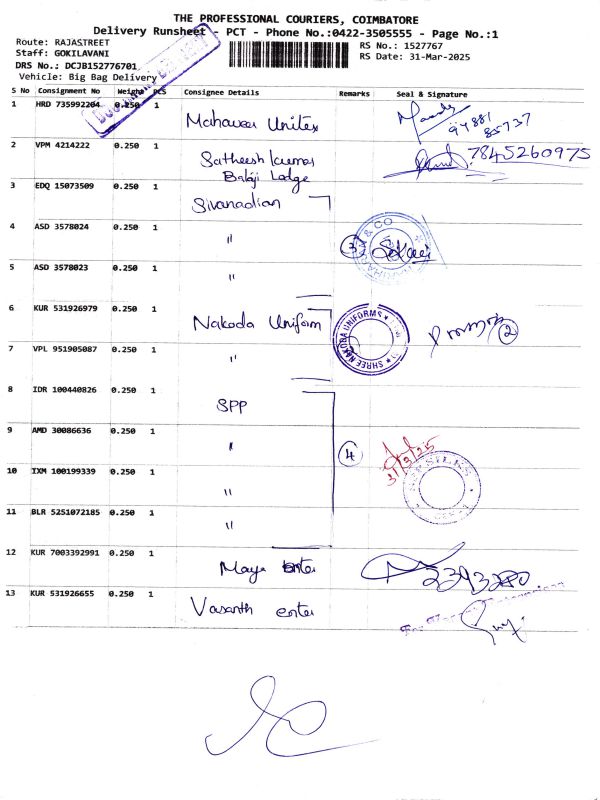 THE PROFESSIONAL COURIERS, COIMBATORE
Delivery Runsheet - PCT - Phone No.:0422-3505555 - Page No.:1
Route: RAJASTREET
RS No.: 1527767
Staff: GOKILAVANI
RS Date: 31-Mar-2025
DRS No.: DCJB152776701
Vehicle: Big Bag Delivery
S No Consignment No Weight PCS Consignee Details Remarks Seal & Signature
1 HRD 735992204 0.250 1 Mahaveer Unitex 94881 85737
2 VPM 4214222 0.250 1 Satheesh kumar 7845260975
Balaji Lodge
3 EDQ 15073509 0.250 1 Sivanadian
4 ASD 3578024 0.250 1 " 3
5 ASD 3578023 0.250 1 "
6 KUR 531926979 0.250 1 Nakoda Uniform SHREE NAKODA UNIFORMS 2
7 VPL 951905087 0.250 1 "
8 IDR 100440826 0.250 1 SPP
9 AMD 30086636 0.250 1 " 4 31/3/25
10 IXM 100199339 0.250 1 "
11 BLR 5251072185 0.250 1 "
12 KUR 7003392991 0.250 1 Maya enter
13 KUR 531926655 0.250 1 Vasanth enter
For